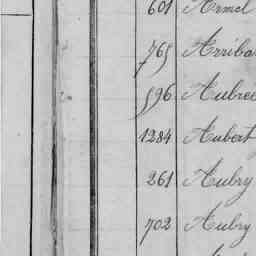 601 Armel
765 Arriba
596 Aubree
1284 Aubert
261 Aubry
702 Aubry